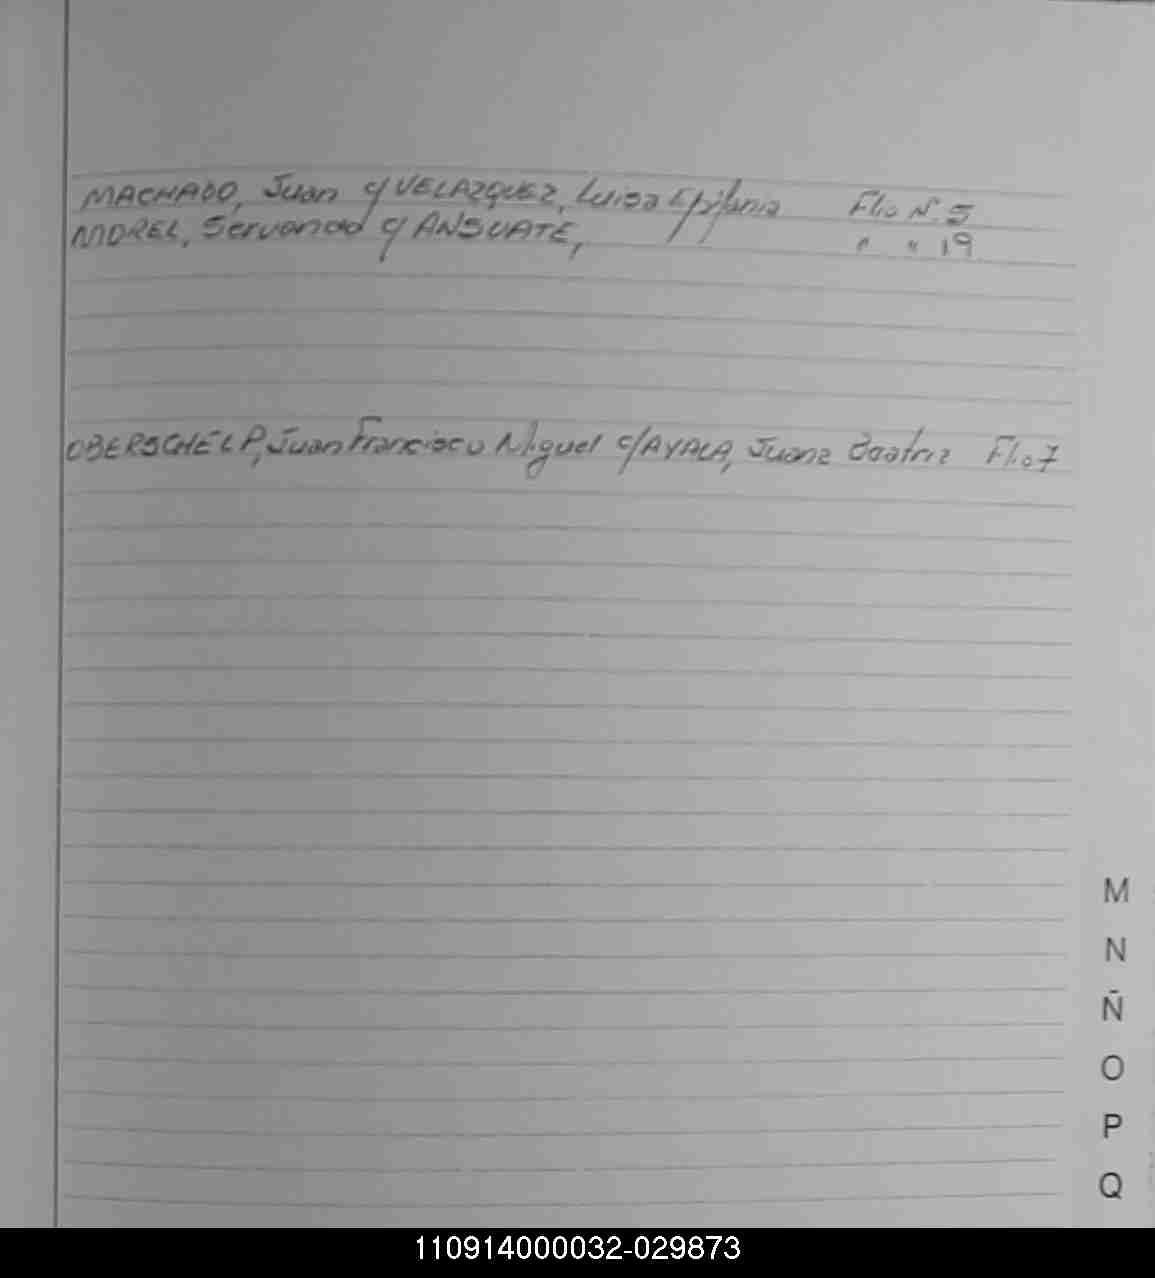 MACHADO, Juan c/ VELAZQUEZ, Luisa Epifania Flio Nº 5
MOREL, Servando c/ ANSUATE, " " 19
OBERSCHELP, Juan Francisco Miguel c/ AYALA, Juana Beatriz Flio 7
M
N
Ñ
O
P
Q
110914000032-029873